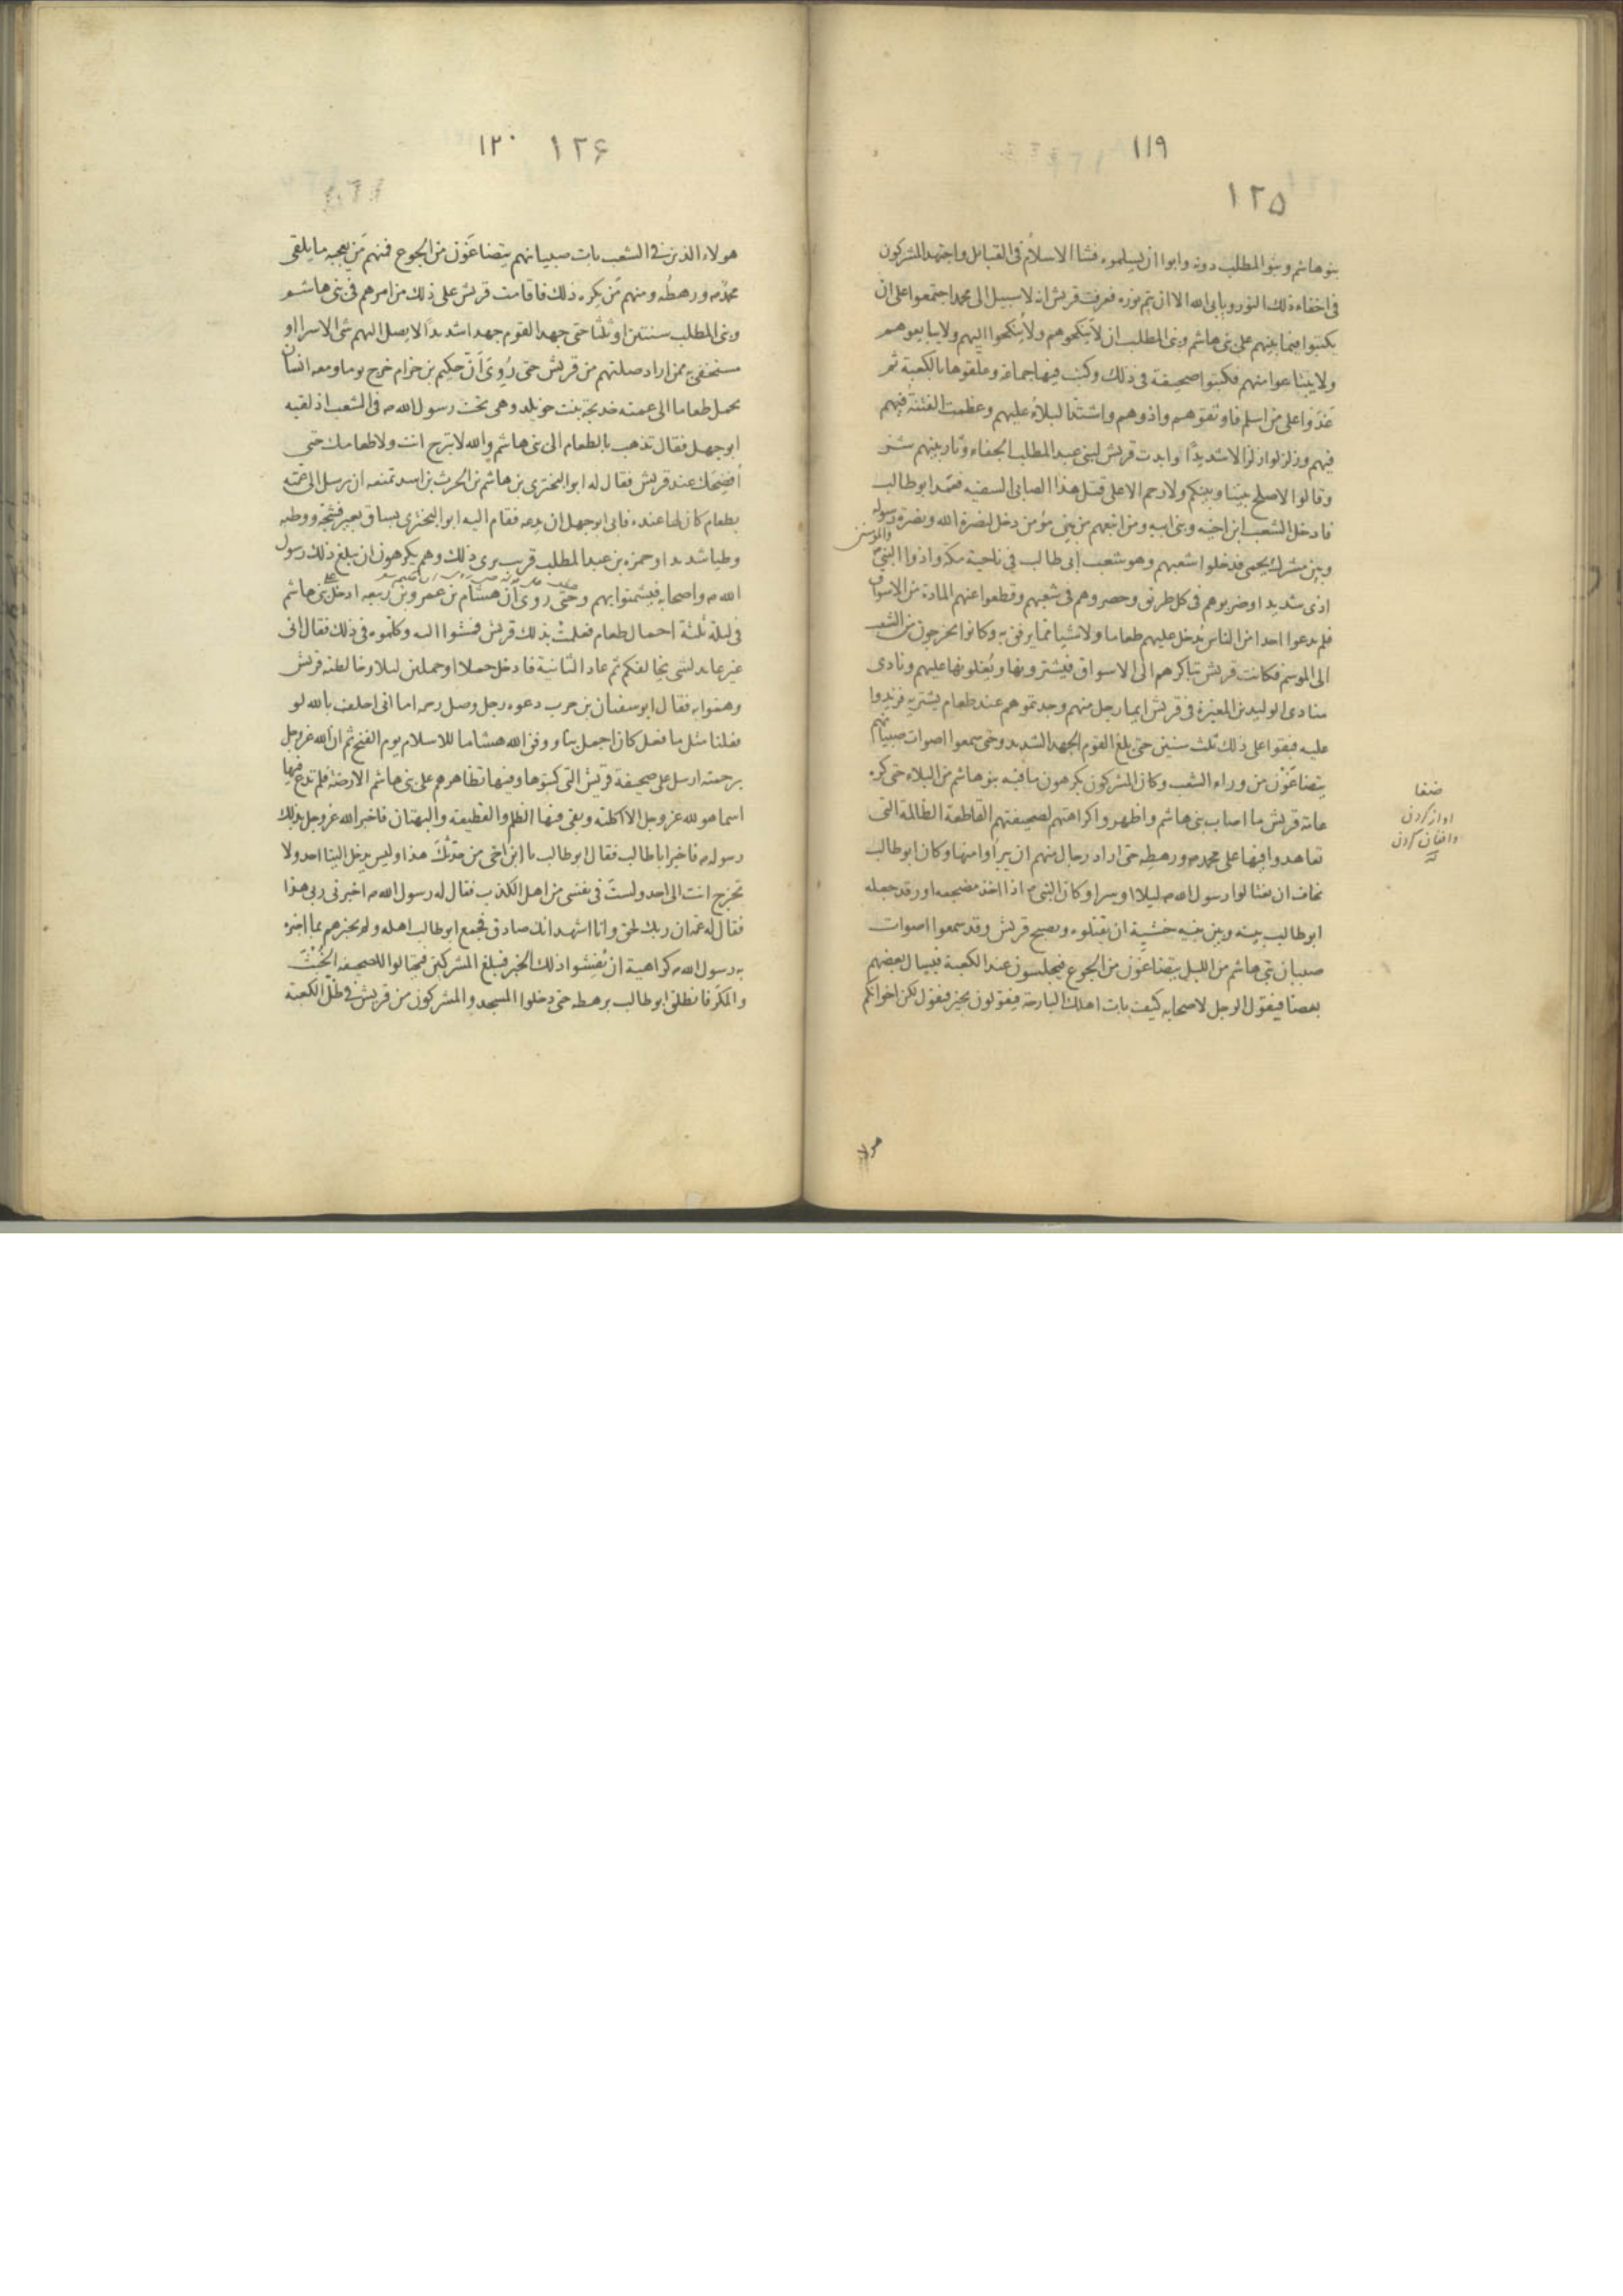 ١١٩
١٢٥
بنو هاشم وبنو المطلب دونه وابوا ان يسلموه فشا الاسلام فى القبائل واجتهد المشركون
فى اخفاء ذلك النور ويابى الله الا ان يتم نوره فعرفت قريش انه لا سبيل الى محمد اجتمعوا على ان
يكتبوا فيما بينهم على بنى هاشم وبنى المطلب ان لا ينكحوهم ولا ينكحوا اليهم ولا يبايعوهم
ولا يبتاعوا منهم فكتبوا صحيفة فى ذلك وكتب فيها جماعة وعلقوها بالكعبة ثم
عدوا على من اسلم فاوثقوهم واذوهم واشتد البلاء عليهم وعظمت الفتنة فيهم
فيهم وزلزلوا زلزالا شديدًا وابدت قريش لبنى عبد المطلب الجفاء وثار بينهم شر
وقالوا لا صلح بيننا وبينكم ولا رحم الا على قتل هذا الصابى السفيه فعمد ابو طالب
فادخل الشعب ابن اخيه وبنى ابيه ومن اتبعهم من بين مؤمن دخل لنصرة الله ونصرة رسوله
والمؤمنين
وبين مشرك يحمى فدخلوا شعبهم وهو شعب ابى طالب فى ناحية مكة واذوا النبى
اذى شديدا وضربوهم فى كل طريق وحصروهم فى شعبهم وقطعوا عنهم المادة من الاسواق
فلم يدعوا احدا من الناس يدخل عليهم طعاما ولا شيا مما يرفق به وكانوا يخرجون من الشعب
الى الموسم فكانت قريش تباكرهم الى الاسواق فيشترونها ويغلونها عليهم ونادى
منادى الوليد بن المغيرة فى قريش ايما رجل منهم وجدتموهم عند طعام يشتريه فزيدوا
عليه فبقوا على ذلك ثلث سنين حتى بلغ القوم الجهد الشديد وحتى سمعوا اصوات صبيانهم
يتضاغون من وراء الشعب وكان المشركون يكرهون ما فيه بنو هاشم من البلاء حتى كره
عامة قريش ما اصاب بنى هاشم واظهروا كراهتهم لصحيفتهم القاطعة الظالمة التى
تعاهدوا فيها على محمد ورهطه حتى اراد رجال منهم ان يبرأوا منها وكان ابو طالب
يخاف ان يغتالوا رسول الله ليلا او سرا وكان النبى اذا اخذ مضجعه او رقد جعله
ابو طالب بينه وبين بنيه خشية ان يقتلوه ويصبح قريش وقد سمعوا اصوات
صبيان بنى هاشم من الليل يتضاغون من الجوع فيجلسون عند الكعبة فيسال بعضهم
بعضا فيقول الرجل لاصحابه كيف بات اهلك البارحة فيقولون بخير فيقول لكن اخوانكم
هولا
ضغا
اواز كردن
وافغان كردن
١٢٠ ١٢۶
هولاء الذين فى الشعب بات صبيانهم يتضاغون من الجوع فمنهم من يعجبه ما يلقى
محمد ورهطه ومنهم من يكره ذلك فاقامت قريش على ذلك من امرهم فى بنى هاشم
وبنى المطلب سنتين او ثلثا حتى جهد القوم جهدا شديدًا لا يصل اليهم شى الا سرا او
مستخفى به ممن اراد صلتهم من قريش حتى روى ان حكيم بن حزام خرج يوما ومعه انسان
يحمل طعاما الى عمته خديجة بنت خويلد وهى تحت رسول الله فى الشعب اذ لقيه
ابو جهل فقال تذهب بالطعام الى بنى هاشم والله لا تبرح انت ولا طعامك حتى
افضحك عند قريش فقال له ابو البخترى بن هاشم بن الحرث بن اسد تمنعه ان يرسل الى عمته
بطعام كان لها عنده فابى ابو جهل ان يدعه فقام اليه ابو البخترى بساق بعير فشجه ووطيه
وطيا شديدا وحمزه بن عبد المطلب قريب يرى ذلك وهم يكرهون ان يبلغ ذلك رسول
الله واصحابه فيشمتوا بهم وحتى روى ان هشام بن عمرو بن ربيعه ادخل على بنى هاشم
فى ليلة ثلثة احمال طعام فعلمت بذلك قريش فمشوا اليه وكلموه فى ذلك فقال انى
غير عايد لشى يخالفكم ثم عاد الثانية فادخل حملا او حملين ليلا وغالظته قريش
وهموا به فقال ابو سفيان بن حرب دعوه رجل وصل رحمه اما انى احلف بالله لو
فعلنا مثل ما فعل كان اجمل بنا ووفق الله هشاما للاسلام يوم الفتح ثم ان الله عز وجل
برحمته ارسل على صحيفة قريش التى كتبوها وفيها تظاهرهم على بنى هاشم الارضة فلم تدع فيها
اسما هو لله عز وجل الا اكلته وبقى فيها الظلم والقطيعة والبهتان فاخبر الله عز وجل بذلك
رسوله فاخبر ابا طالب فقال ابو طالب يا ابن اخى من حدثك هذا وليس يدخل الينا احد ولا
تخرج انت الى احد ولست فى نفسى من اهل الكذب فقال له رسول الله اخبرنى ربى هذا
فقال له عمه ان ربك لحق وانا اشهد انك صادق فجمع ابو طالب اهله ولم يخبرهم بما اخبره
به رسول الله كراهية ان يفشوا ذلك الخبر فيبلغ المشركين فيحتالوا للصحيفة الخبث
والمكر فانطلق ابو طالب برهطه حتى دخلوا المسجد والمشركون من قريش فى ظل الكعبة